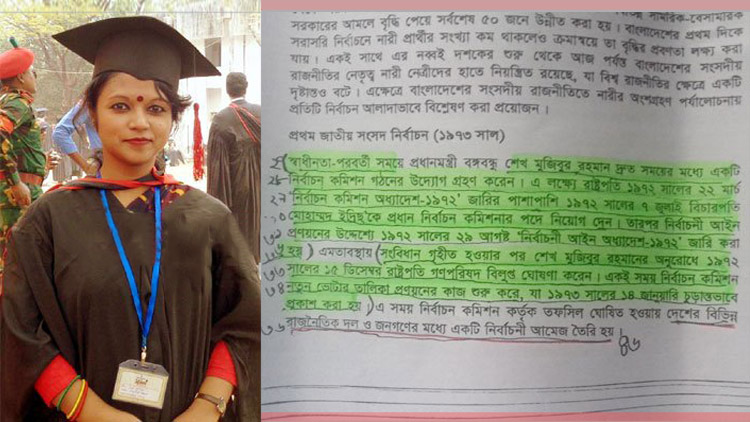 সরকারের আমলে বৃদ্ধি পেয়ে সর্বশেষ ৫০ জনে উন্নীত করা হয়। বাংলাদেশের প্রথম দিকে
সরাসরি নির্বাচনে নারী প্রার্থীর সংখ্যা কম থাকলেও ক্রমান্বয়ে তা বৃদ্ধির প্রবণতা লক্ষ্য করা
যায়। একই সাথে এর নব্বই দশকের শুরু থেকে আজ পর্যন্ত বাংলাদেশের সংসদীয়
রাজনীতির নেতৃত্ব নারী নেত্রীদের হাতে নিয়ন্ত্রিত রয়েছে, যা বিশ্ব রাজনীতির ক্ষেত্রে একটি
দৃষ্টান্তও বটে। এক্ষেত্রে বাংলাদেশের সংসদীয় রাজনীতিতে নারীর অংশগ্রহণ পর্যালোচনায়
প্রতিটি নির্বাচন আলাদাভাবে বিশ্লেষণ করা প্রয়োজন।
প্রথম জাতীয় সংসদ নির্বাচন (১৯৭৩ সাল)
স্বাধীনতা-পরবর্তী সময়ে প্রধানমন্ত্রী বঙ্গবন্ধু শেখ মুজিবুর রহমান দ্রুত সময়ের মধ্যে একটি
নির্বাচন কমিশন গঠনের উদ্যোগ গ্রহণ করেন। এ লক্ষ্যে রাষ্ট্রপতি ১৯৭২ সালের ২২ মার্চ
'নির্বাচন কমিশন অধ্যাদেশ-১৯৭২' জারির পাশাপাশি ১৯৭২ সালের ৭ জুলাই বিচারপতি
মোহাম্মদ ইদ্রিছ'কে প্রধান নির্বাচন কমিশনার পদে নিয়োগ দেন। তারপর নির্বাচনী আইন
প্রণয়নের উদ্দেশ্যে ১৯৭২ সালের ২৯ আগষ্ট 'নির্বাচনী আইন অধ্যাদেশ-১৯৭২' জারি করা
হয়। এমতাবস্থায় সংবিধান গৃহীত হওয়ার পর শেখ মুজিবুর রহমানের অনুরোধে ১৯৭২
সালের ১৫ ডিসেম্বর রাষ্ট্রপতি গণপরিষদ বিলুপ্ত ঘোষণা করেন। একই সময় নির্বাচন কমিশন
নতুন ভোটার তালিকা প্রণয়নের কাজ শুরু করে, যা ১৯৭৩ সালের ১৪ জানুয়ারি চূড়ান্তভাবে
প্রকাশ করা হয়। এ সময় নির্বাচন কমিশন কর্তৃক তফসিল ঘোষিত হওয়ায় দেশের বিভিন্ন
রাজনৈতিক দল ও জনগণের মধ্যে একটি নির্বাচনী আমেজ তৈরি হয়।